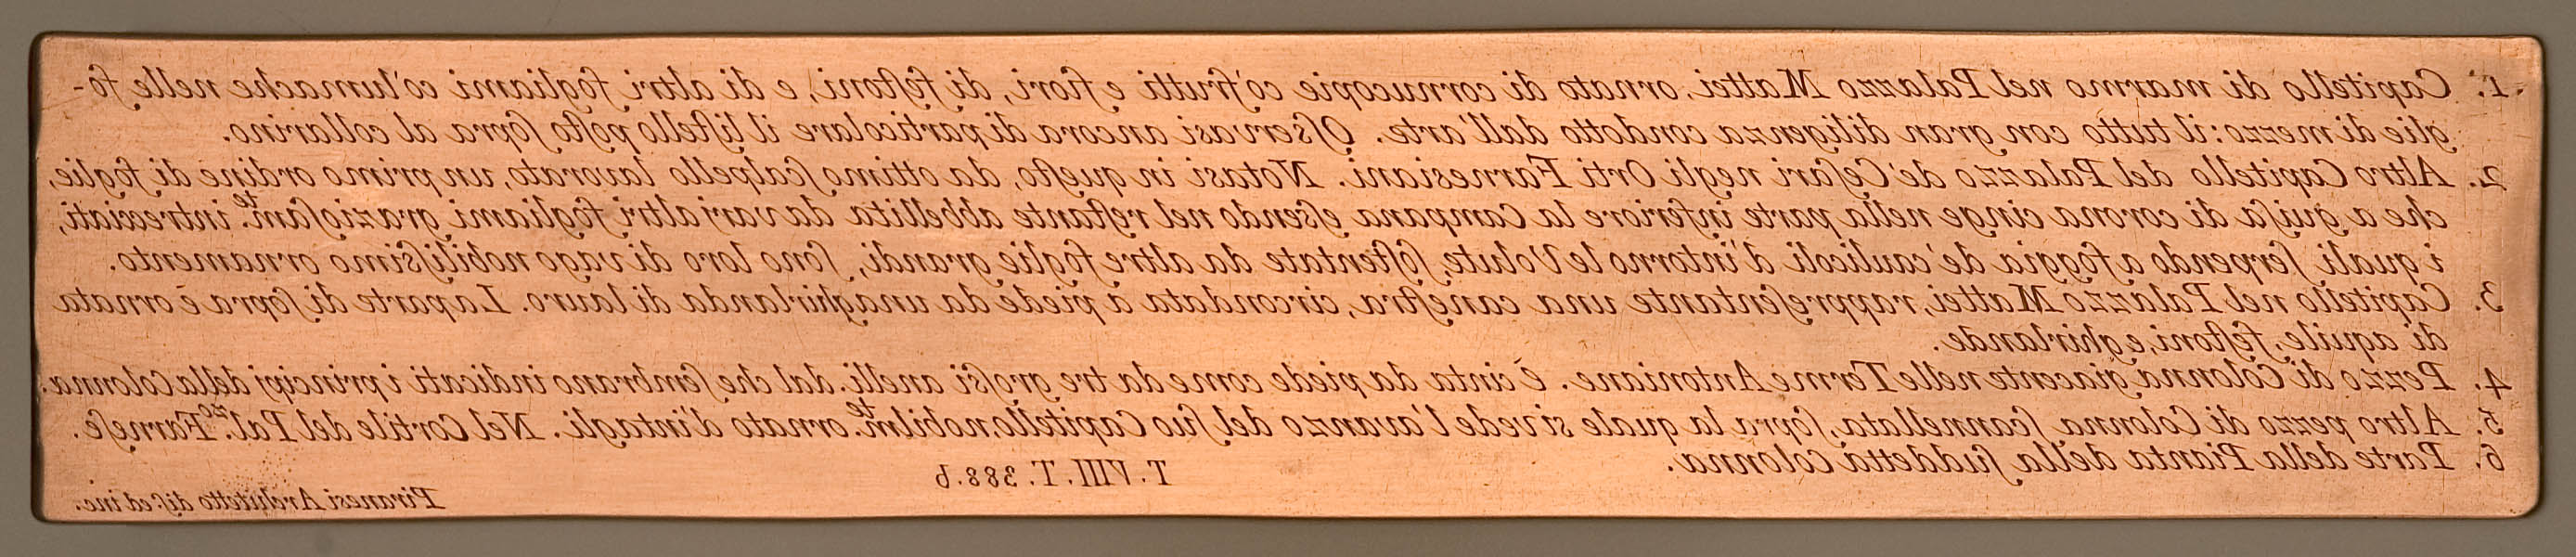 1. Capitello di marmo nel Palazzo Mattei, ornato di cornucopie co' frutti e fiori, di feſtoni, e di altri fogliami co' lumache nelle fo-
glie di mezzo: il tutto con gran diligenza condotto dall'arte. Oſservasi ancora di particolare il liſtello poſto ſopra al collarino.
2. Altro Capitello del Palazzo de' Ceſari negli Orti Farnesiani. Notasi in queſto, da ottimo ſcalpello lavorato, un primo ordine di foglie,
che a guiſa di corona cinge nella parte inferiore la Campana eſsendo nel reſtante abbellita da varj altri fogliami grazioſam.te intrecciati,
i quali ſerpendo a foggia de' caulicoli d'intorno le Volute, ſoſtentate da altre foglie grandi, ſono loro di vago nobiliſsimo ornamento.
3. Capitello nel Palazzo Mattei, rappreſentante una caneſtra, circondata a piede da una ghirlanda di lauro. La parte di ſopra è ornata
di aquile, feſtoni, e ghirlande.
4. Pezzo di Colonna giacente nelle Terme Antoniane. è cinta da piede come da tre groſsi anelli. dal che ſembrano indicati i principj della Colonna.
5. Altro pezzo di Colonna ſcannellata, ſopra la quale si vede l'avanzo del ſuo Capitello, nobilm.te ornato d'intagli. Nel Cortile del Pal.zo Farneſe.
6. Parte della Pianta della ſuddetta Colonna.
T. VIII. T. 388. b
Piranesi Architetto diſ. ed inc.